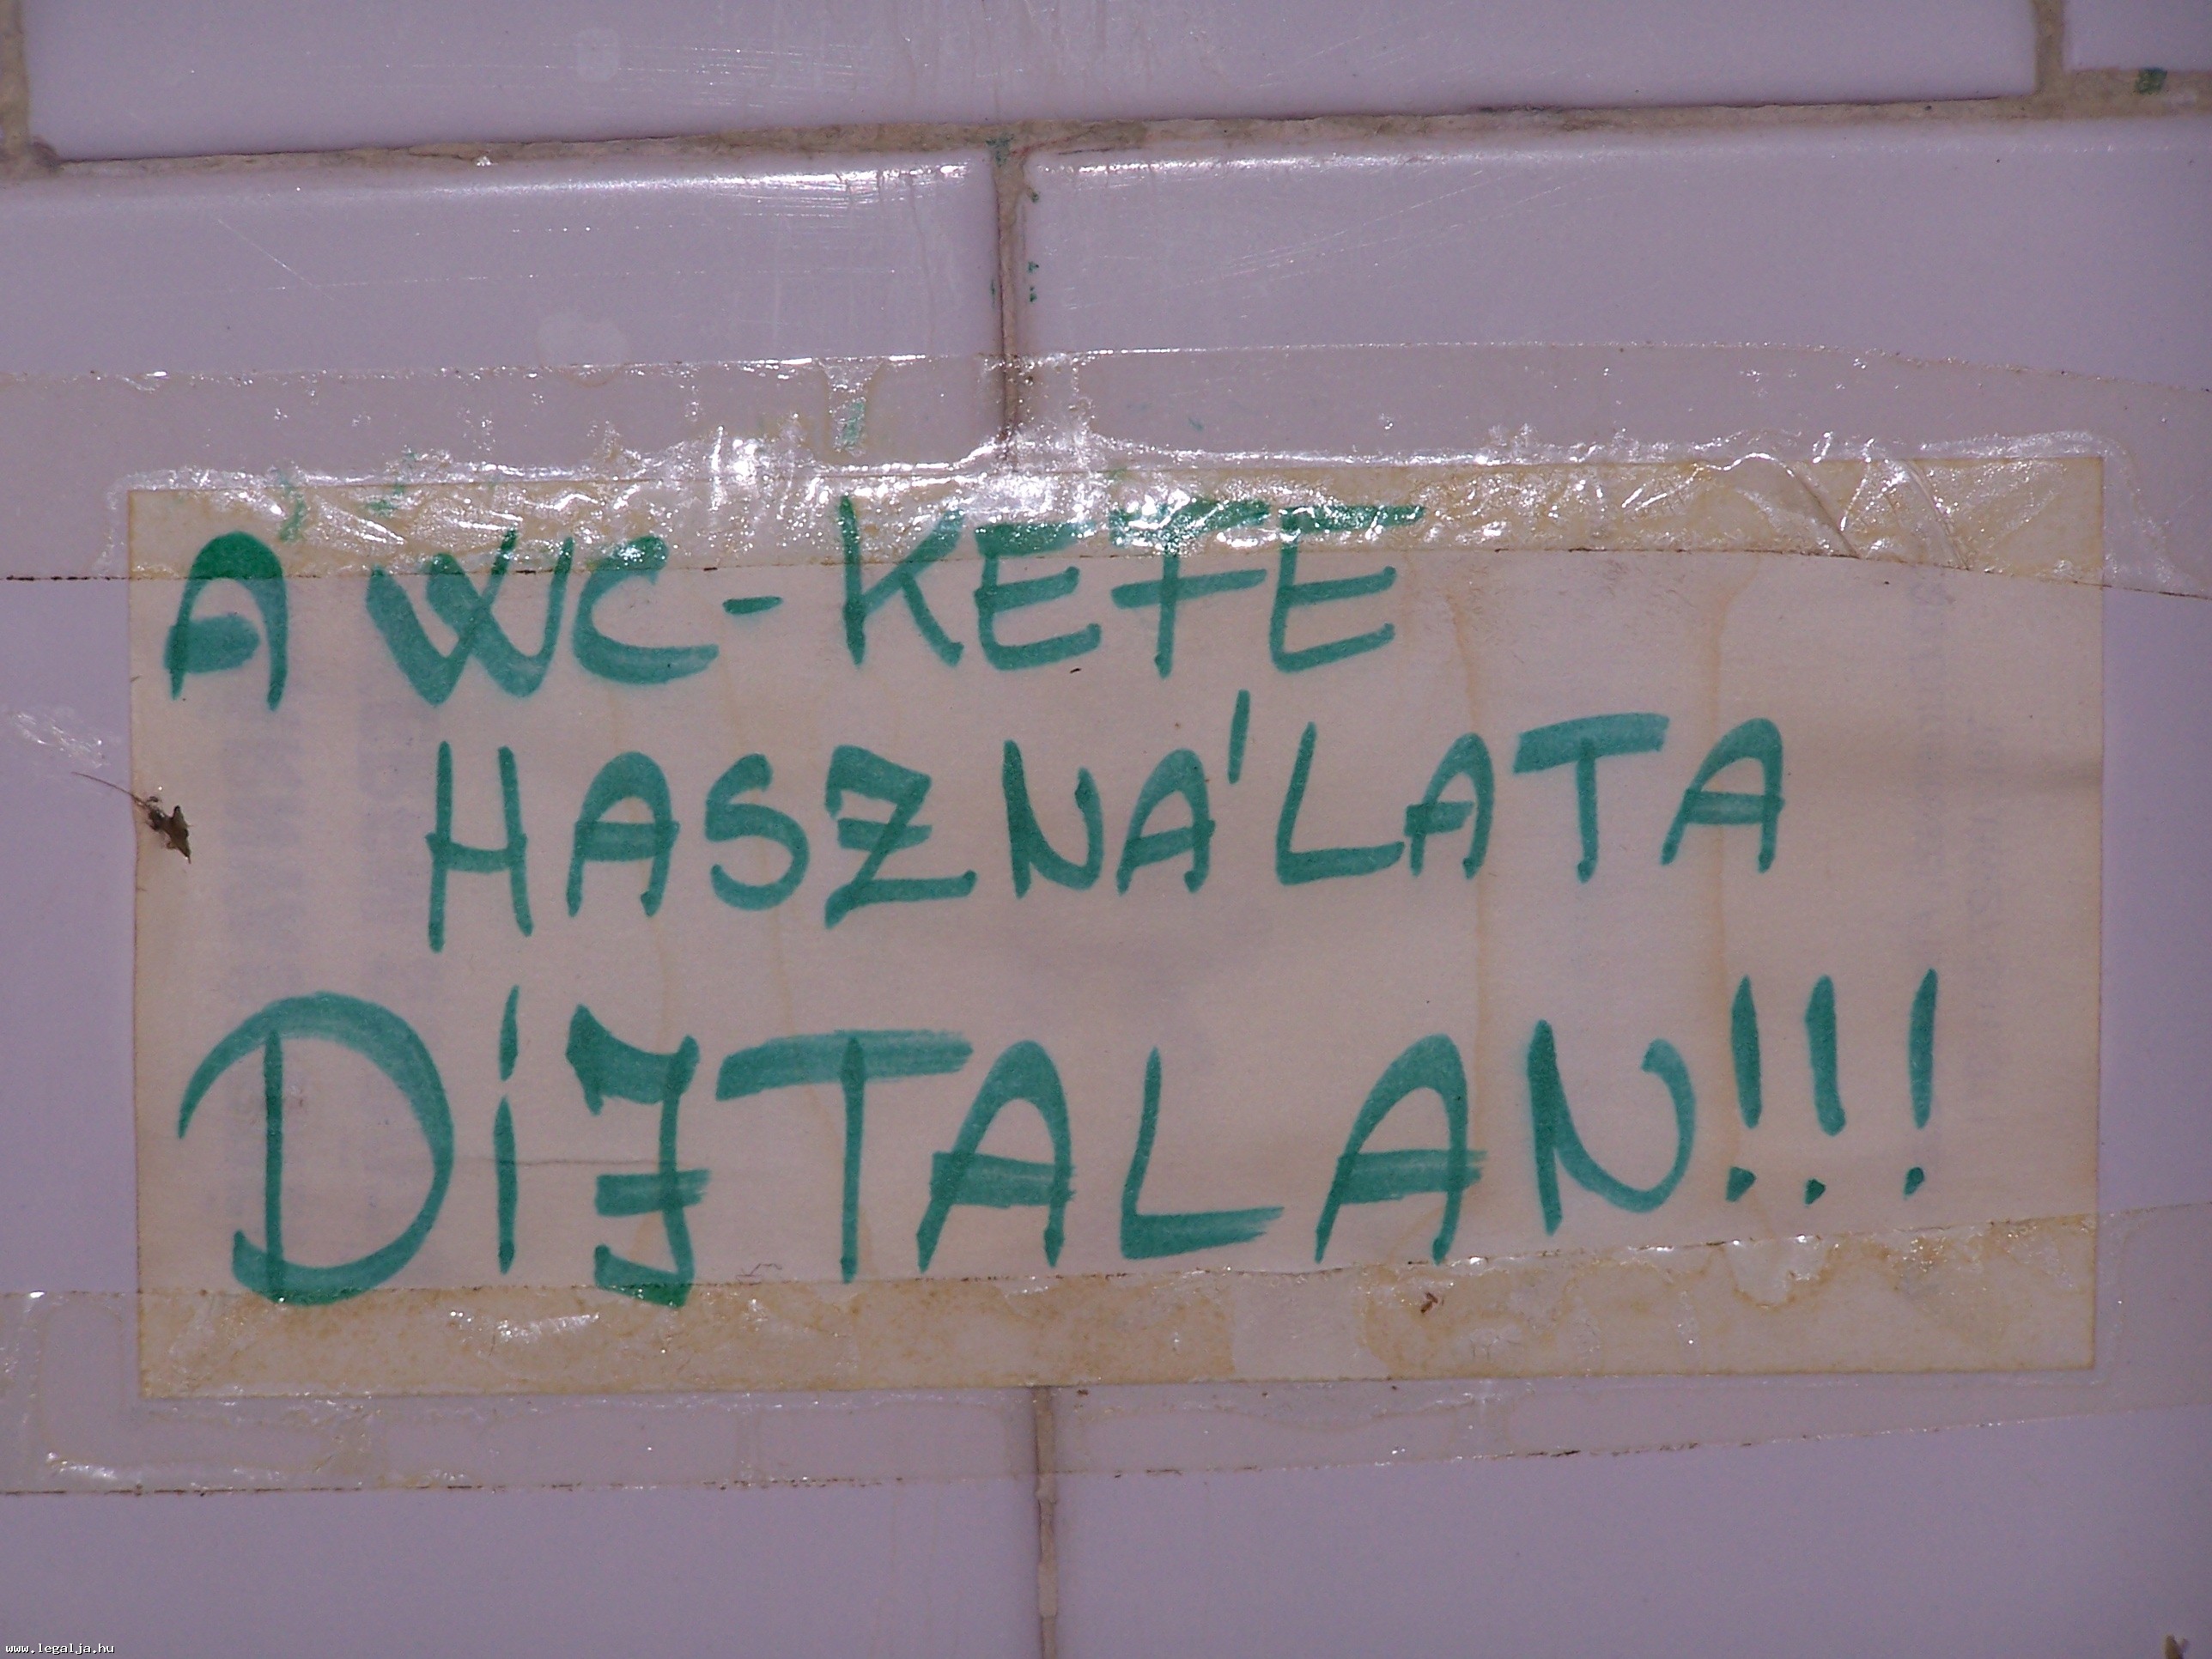 A WC-KEFE
HASZNÁLATA
DÍJTALAN!!!
www.legalja.hu